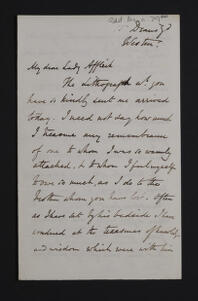 My dear Lady Affleck
The lithograph wh. you
have so kindly sent me arrived
today. I need not say how much
I treasure any remembrance
of one to whom I was so warmly
attached, & to whom I feel myself
to owe so much, as I do to the
brother whom you have lost. Often
as I have sat by his bedside I have
wondered at the treasures of
and wisdom which were with him